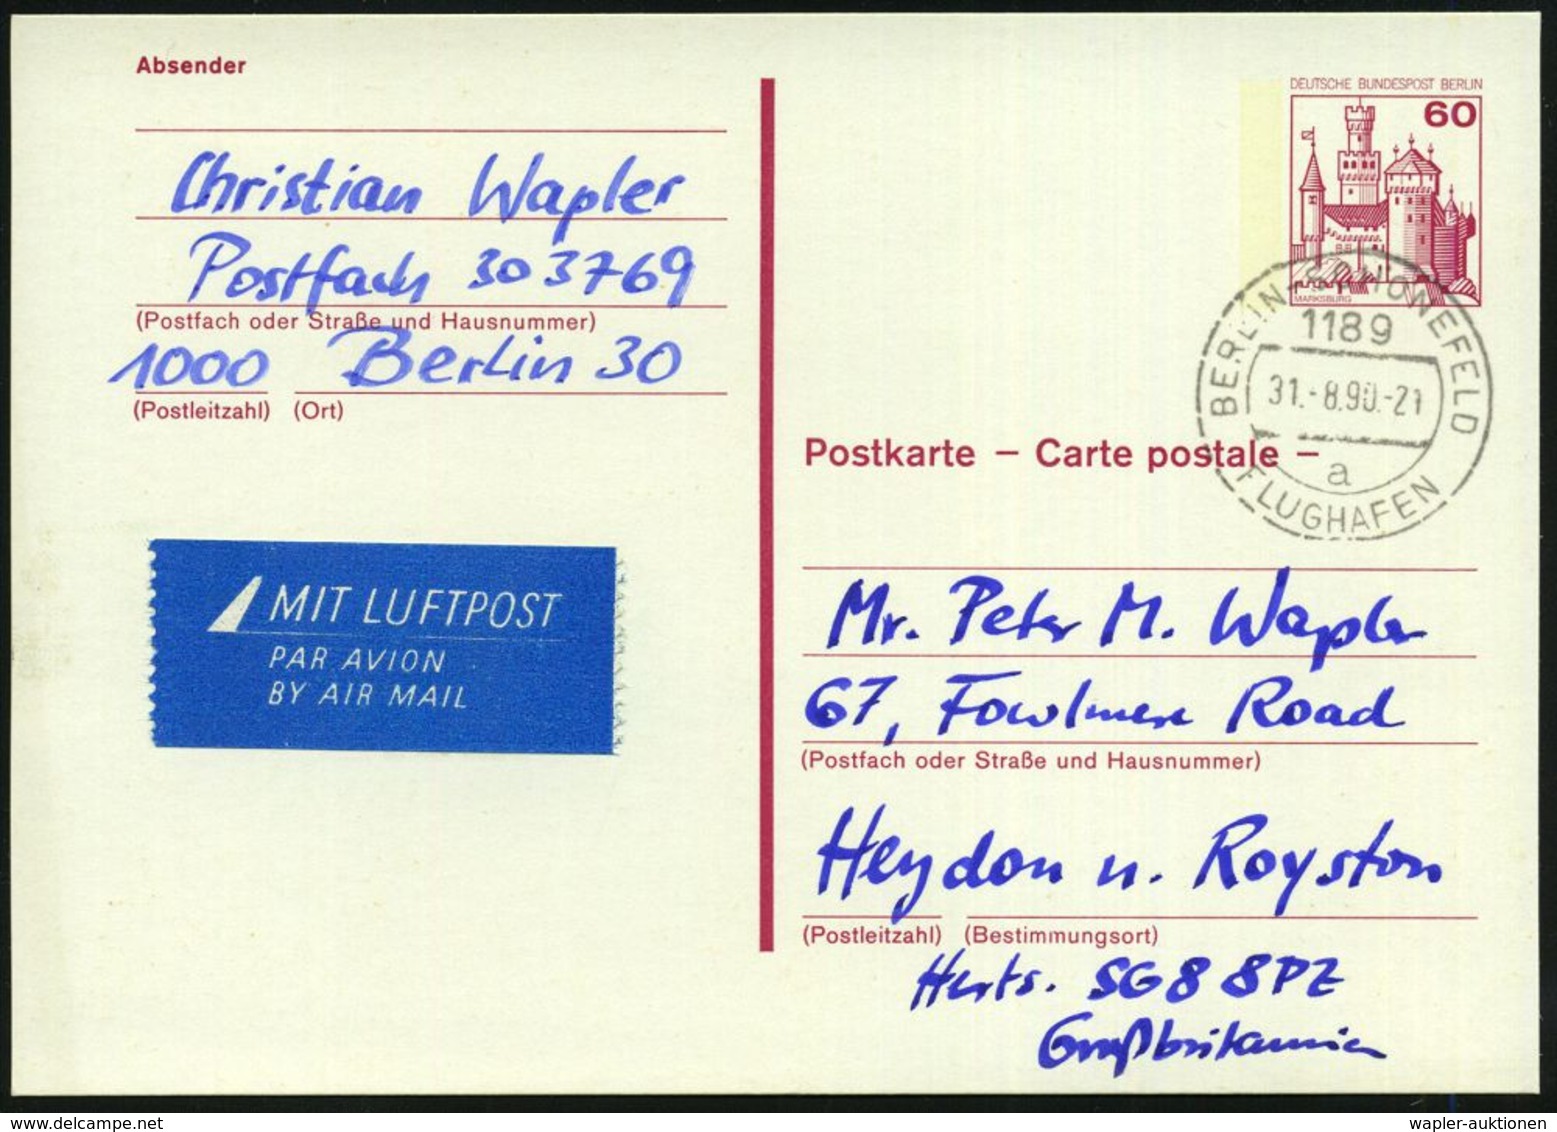 Absender
Christian Wapler
Postfach 303769
(Postfach oder Straße und Hausnummer)
1000 Berlin 30
(Postleitzahl) (Ort)
MIT LUFTPOST
PAR AVION
BY AIR MAIL
DEUTSCHE BUNDESPOST BERLIN
60
MARKSBURG
BERLIN-SCHÖNEFELD
1189
31.-8.90.-21
a
FLUGHAFEN
Postkarte – Carte postale –
Mr. Peter M. Wapler
67, Fowlmere Road
(Postfach oder Straße und Hausnummer)
Heydon n. Royston
(Postleitzahl) (Bestimmungsort)
Herts. SG8 8PZ
Großbritannien
wapler-auktionen